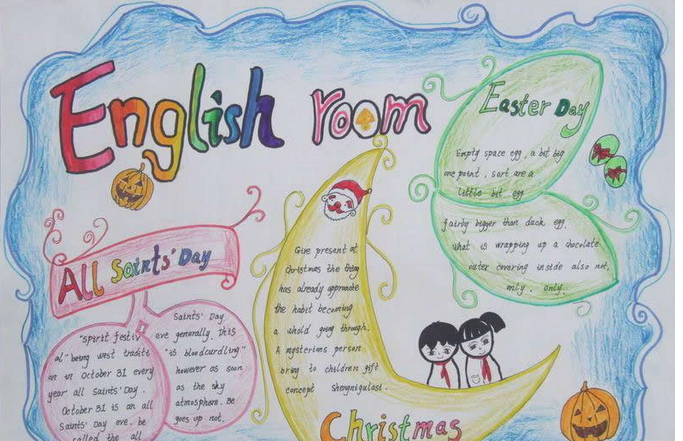 English room
Easter Day
Empty space egg, a bit big
one point, sort are a
little bit egg
fairly bigger than duck egg.
What is wrapping up a chocolate
outer covering inside also not,
only, only.
All Saints' Day
"Spirit festiv
al" being west traditi
on in October 31 every
year all Saints' Day.
October 31 is an all
Saints' Day eve. be
called the all
Saints' Day
eve generally. This
"is bloodcurdling"
however as soon
as the sky
atmosphere. Be
goes up not.
Give present at
Christmas the thing
has already approximate
the habit becoming
a whold going through.
A mysterious person
bring to children gift
concept Shengnigulast.
Christmas